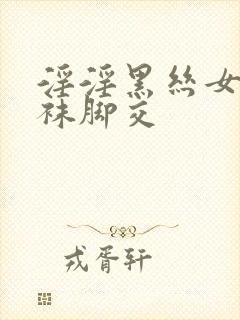 淫淫黑丝女
袜脚交
戎胥轩